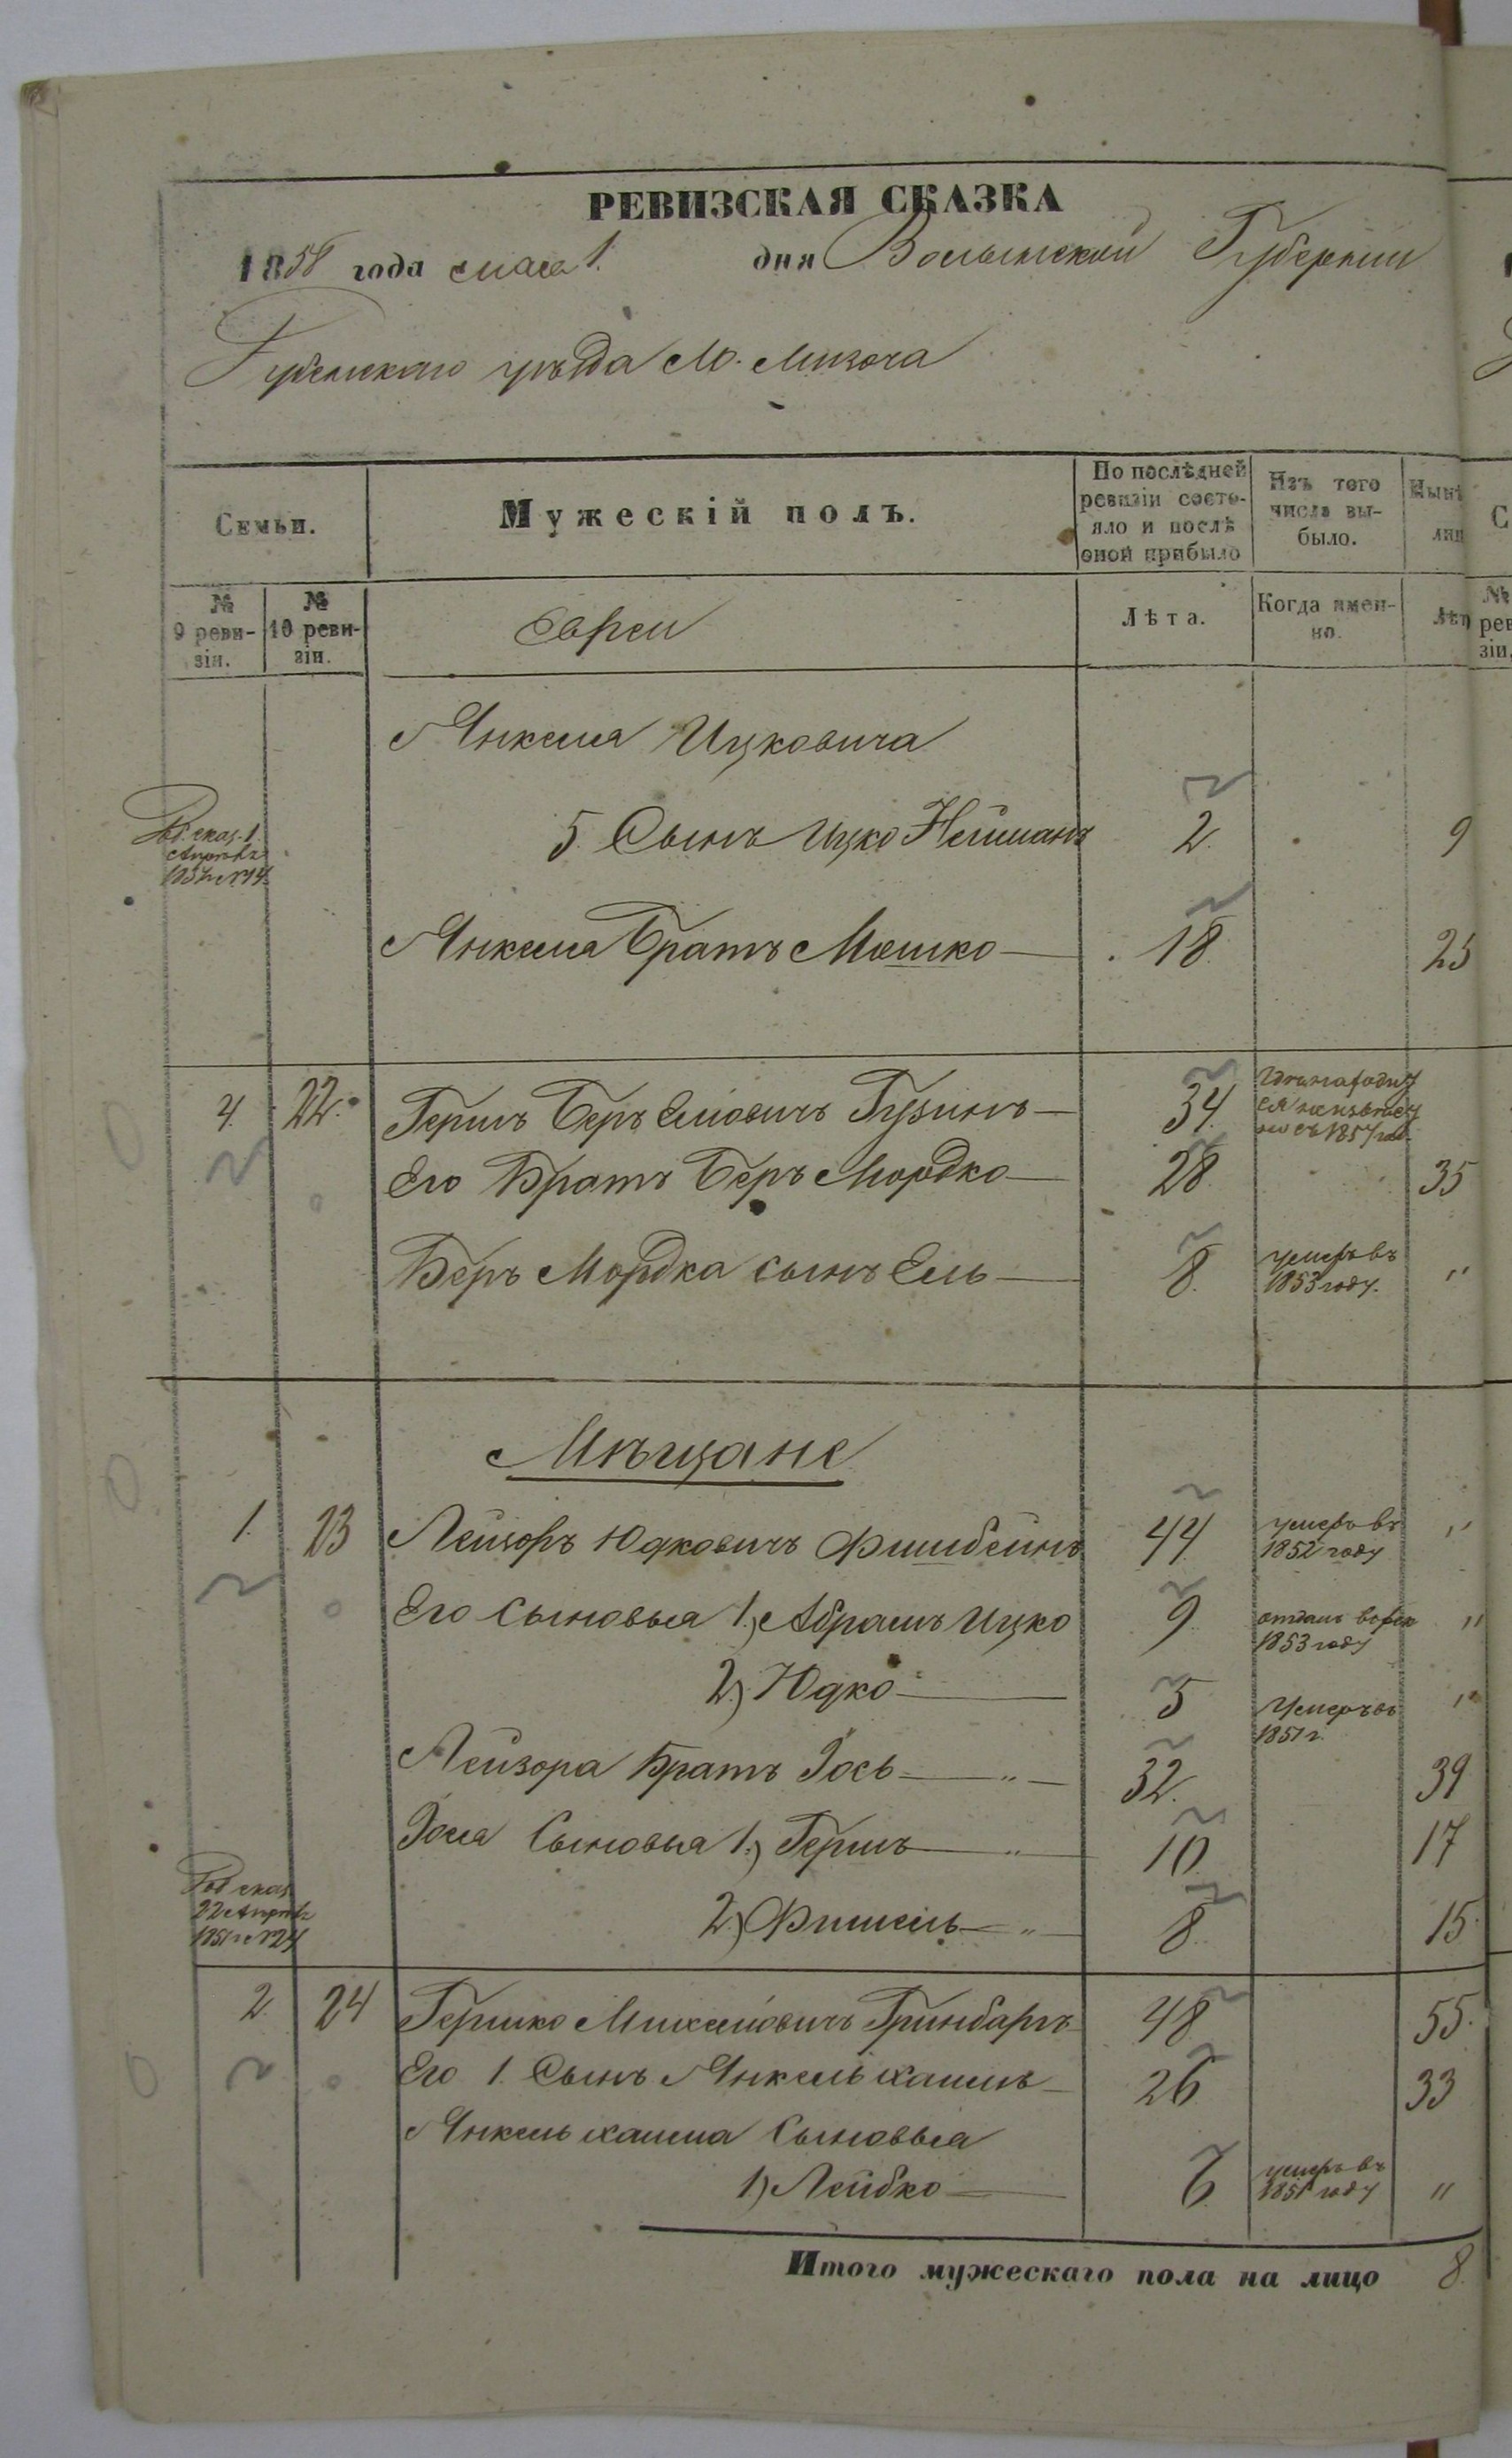 РЕВИЗСКАЯ СКАЗКА
1858 года мая 1. дня Волынской Губернии
уѣзда М. Мизоча
Семьи.
Мужескій полъ.
По послѣдней ревизіи состояло и послѣ оной прибыло
Изъ того числа выбыло.
Нынѣ лиц
№ 9 ревизіи.
№ 10 ревизіи.
Евреи
Лѣта.
Когда именно.
Лѣт
Янкеля Ицковича
5. Сынъ Ицко Нейманъ 2. 9
Янкеля Братъ Мошко 18. 25
4. 22. Гершъ Беръ Еліовичъ Гузикъ 34. 1857
Его Братъ Беръ Мордко 28 35
Беръ Мордка сынъ Ель 8. умеръ въ 1853 году. "
Мѣщане
1. 23 Лейзоръ Юдковичъ Фишбейнъ 44 умеръ въ 1852 году "
Его Сыновья 1.) Абрамъ Ицко 9. отданъ в 1853 году "
2.) Юдко 5 Умеръ въ 1851 г. "
Лейзора Братъ Іось " 32. 39
Іося Сыновья 1.) Гершъ " 10 17
2.) Фишель " 8. 15
2 24 Гершко Михелевичъ Гринбаргъ 48 55.
Его 1. Сынъ Янкель хаимъ 26 33
Янкель хаима Сыновья
1) Лейбко 6 умеръ въ 1851 году "
Итого мужескаго пола на лицо 8.